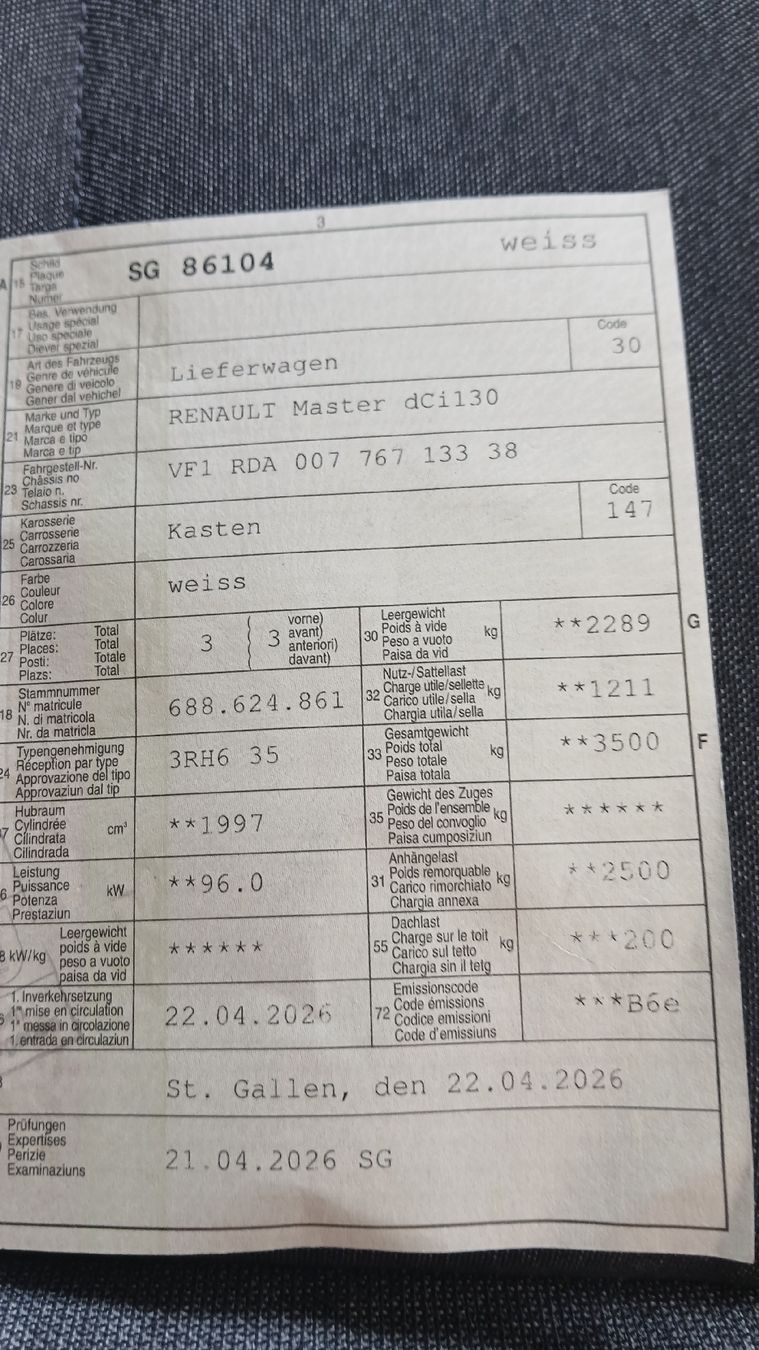 3
A 15 Schild
Plaque
Targa
Numer
SG 86104 weiss
17 Bes. Verwendung
Usage spécial
Uso speciale
Diever spezial
19 Art des Fahrzeugs
Genre de véhicule
Genere di veicolo
Gener dal vehichel
Lieferwagen
Code
30
21 Marke und Typ
Marque et type
Marca e tipo
Marca e tip
RENAULT Master dCi130
23 Fahrgestell-Nr.
Châssis no
Telaio n.
Schassis nr.
VF1 RDA 007 767 133 38
25 Karosserie
Carrosserie
Carrozzeria
Carossaria
Kasten
Code
147
26 Farbe
Couleur
Colore
Colur
weiss
27 Plätze: Total
Places: Total
Posti: Totale
Plazs: Total
3 ( 3 vorne)
avant)
anteriori)
davant)
30 Leergewicht
Poids à vide
Peso a vuoto
Paisa da vid
kg
**2289
G
18 Stammnummer
N° matricule
N. di matricola
Nr. da matricla
688.624.861
32 Nutz-/Sattellast
Charge utile/sellette
Carico utile/sella
Chargia utila/sella
kg
**1211
24 Typengenehmigung
Réception par type
Approvazione del tipo
Approvaziun dal tip
3RH6 35
33 Gesamtgewicht
Poids total
Peso totale
Paisa totala
kg
**3500
F
7 Hubraum
Cylindrée
Cilindrata
Cilindrada
cm³
**1997
35 Gewicht des Zuges
Poids de l'ensemble
Peso del convoglio
Paisa cumposiziun
kg
******
6 Leistung
Puissance
Potenza
Prestaziun
kW
**96.0
31 Anhängelast
Poids remorquable
Carico rimorchiato
Chargia annexa
kg
**2500
8 kW/kg Leergewicht
poids à vide
peso a vuoto
paisa da vid
******
55 Dachlast
Charge sur le toit
Carico sul tetto
Chargia sin il tetg
kg
***200
6 1. Inverkehrsetzung
1re mise en circulation
1a messa in circolazione
1. entrada en circulaziun
22.04.2026
72 Emissionscode
Code émissions
Codice emissioni
Code d'emissiuns
***B6e
St. Gallen, den 22.04.2026
Prüfungen
Expertises
Perizie
Examinaziuns
21.04.2026 SG